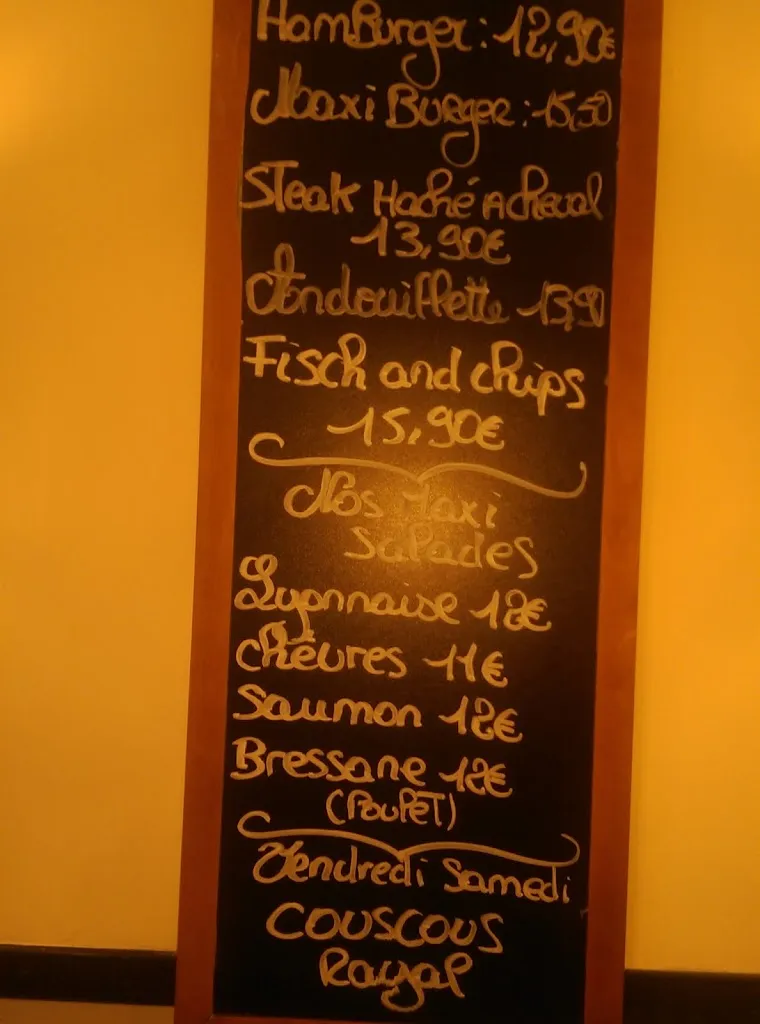 HamBurger : 12,90€
Maxi Burger : 15,50
Steak Haché A cheval
13,90€
Andouillette 13,90
Fisch and chips
15,90€
Nos Maxi
Salades
Lyonnaise 12€
chèvres 11€
Saumon 12€
Bressane 12€
(Poulet)
Vendredi Samedi
couscous
Royal